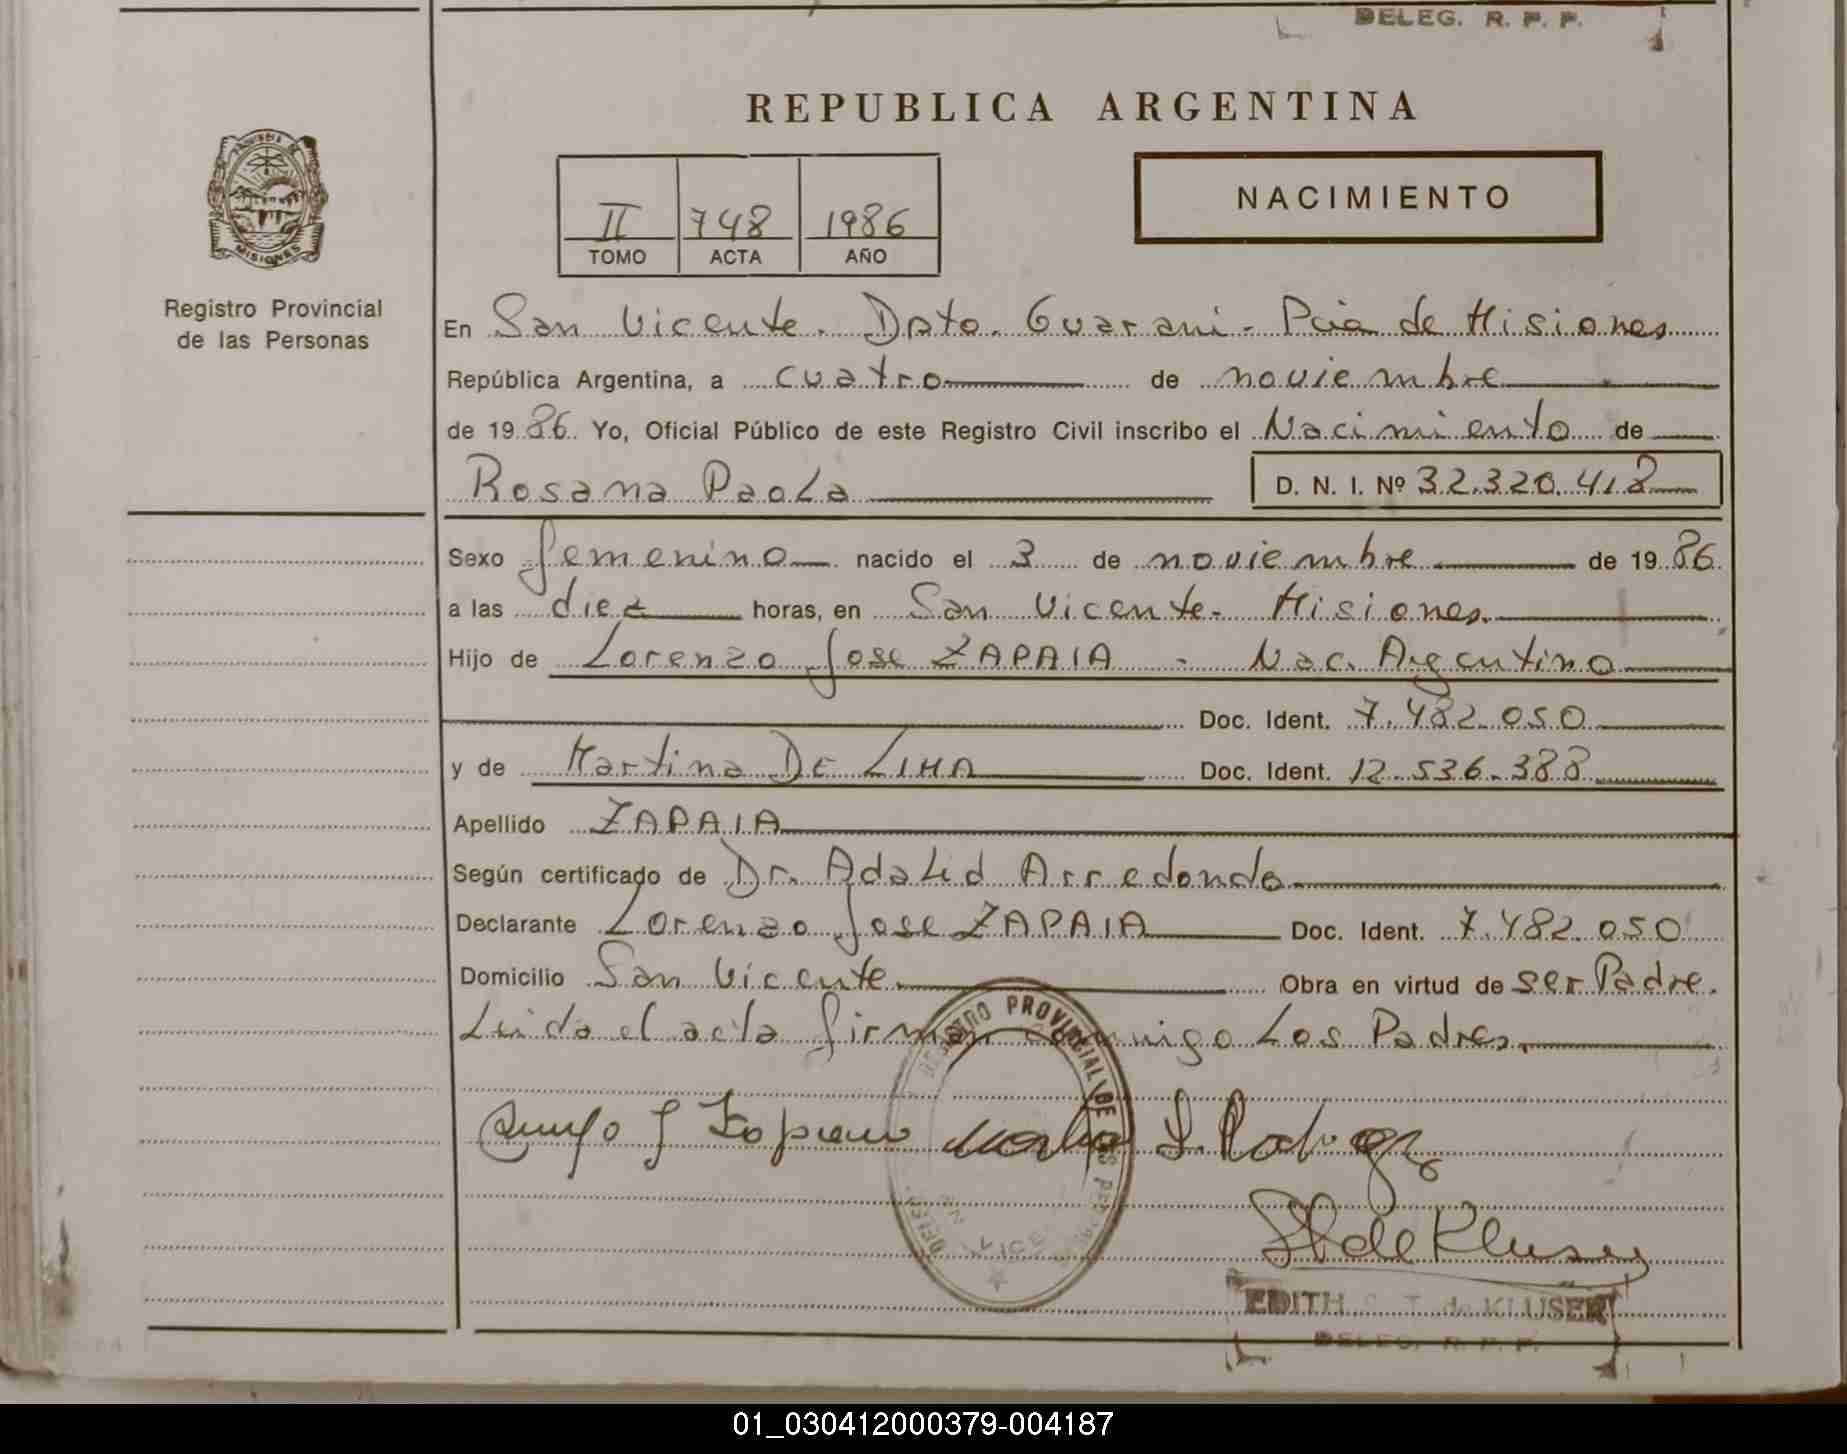 DELEG. R. P. P.
REPUBLICA ARGENTINA
PROVINCIA DE
MISIONES
Registro Provincial
de las Personas
II 748 1986
TOMO ACTA AÑO
NACIMIENTO
En San Vicente. Dpto. Guarani - Pcia de Misiones
República Argentina, a cuatro de noviembre
de 1986. Yo, Oficial Público de este Registro Civil inscribo el Nacimiento de
Rosana Paola D. N. I. Nº 32.320.418
Sexo femenino nacido el 3 de noviembre de 1986.
a las diez horas, en San Vicente - Misiones.
Hijo de Lorenzo Jose ZAPAIA - Nac. Argentino
Doc. Ident. 7.482.050
y de Martina DE LIMA Doc. Ident. 12.536.388
Apellido ZAPAIA
Según certificado de Dr. Adalid Arredondo
Declarante Lorenzo Jose ZAPAIA Doc. Ident. 7.482.050
Domicilio San Vicente. Obra en virtud de ser Padre.
Leida el acta firman conmigo Los Padres.
REGISTRO PROVINCIAL DE LAS
de Kluser
EDITH S. T. de KLUSER
DELEG. R. P. P.
01_030412000379-004187